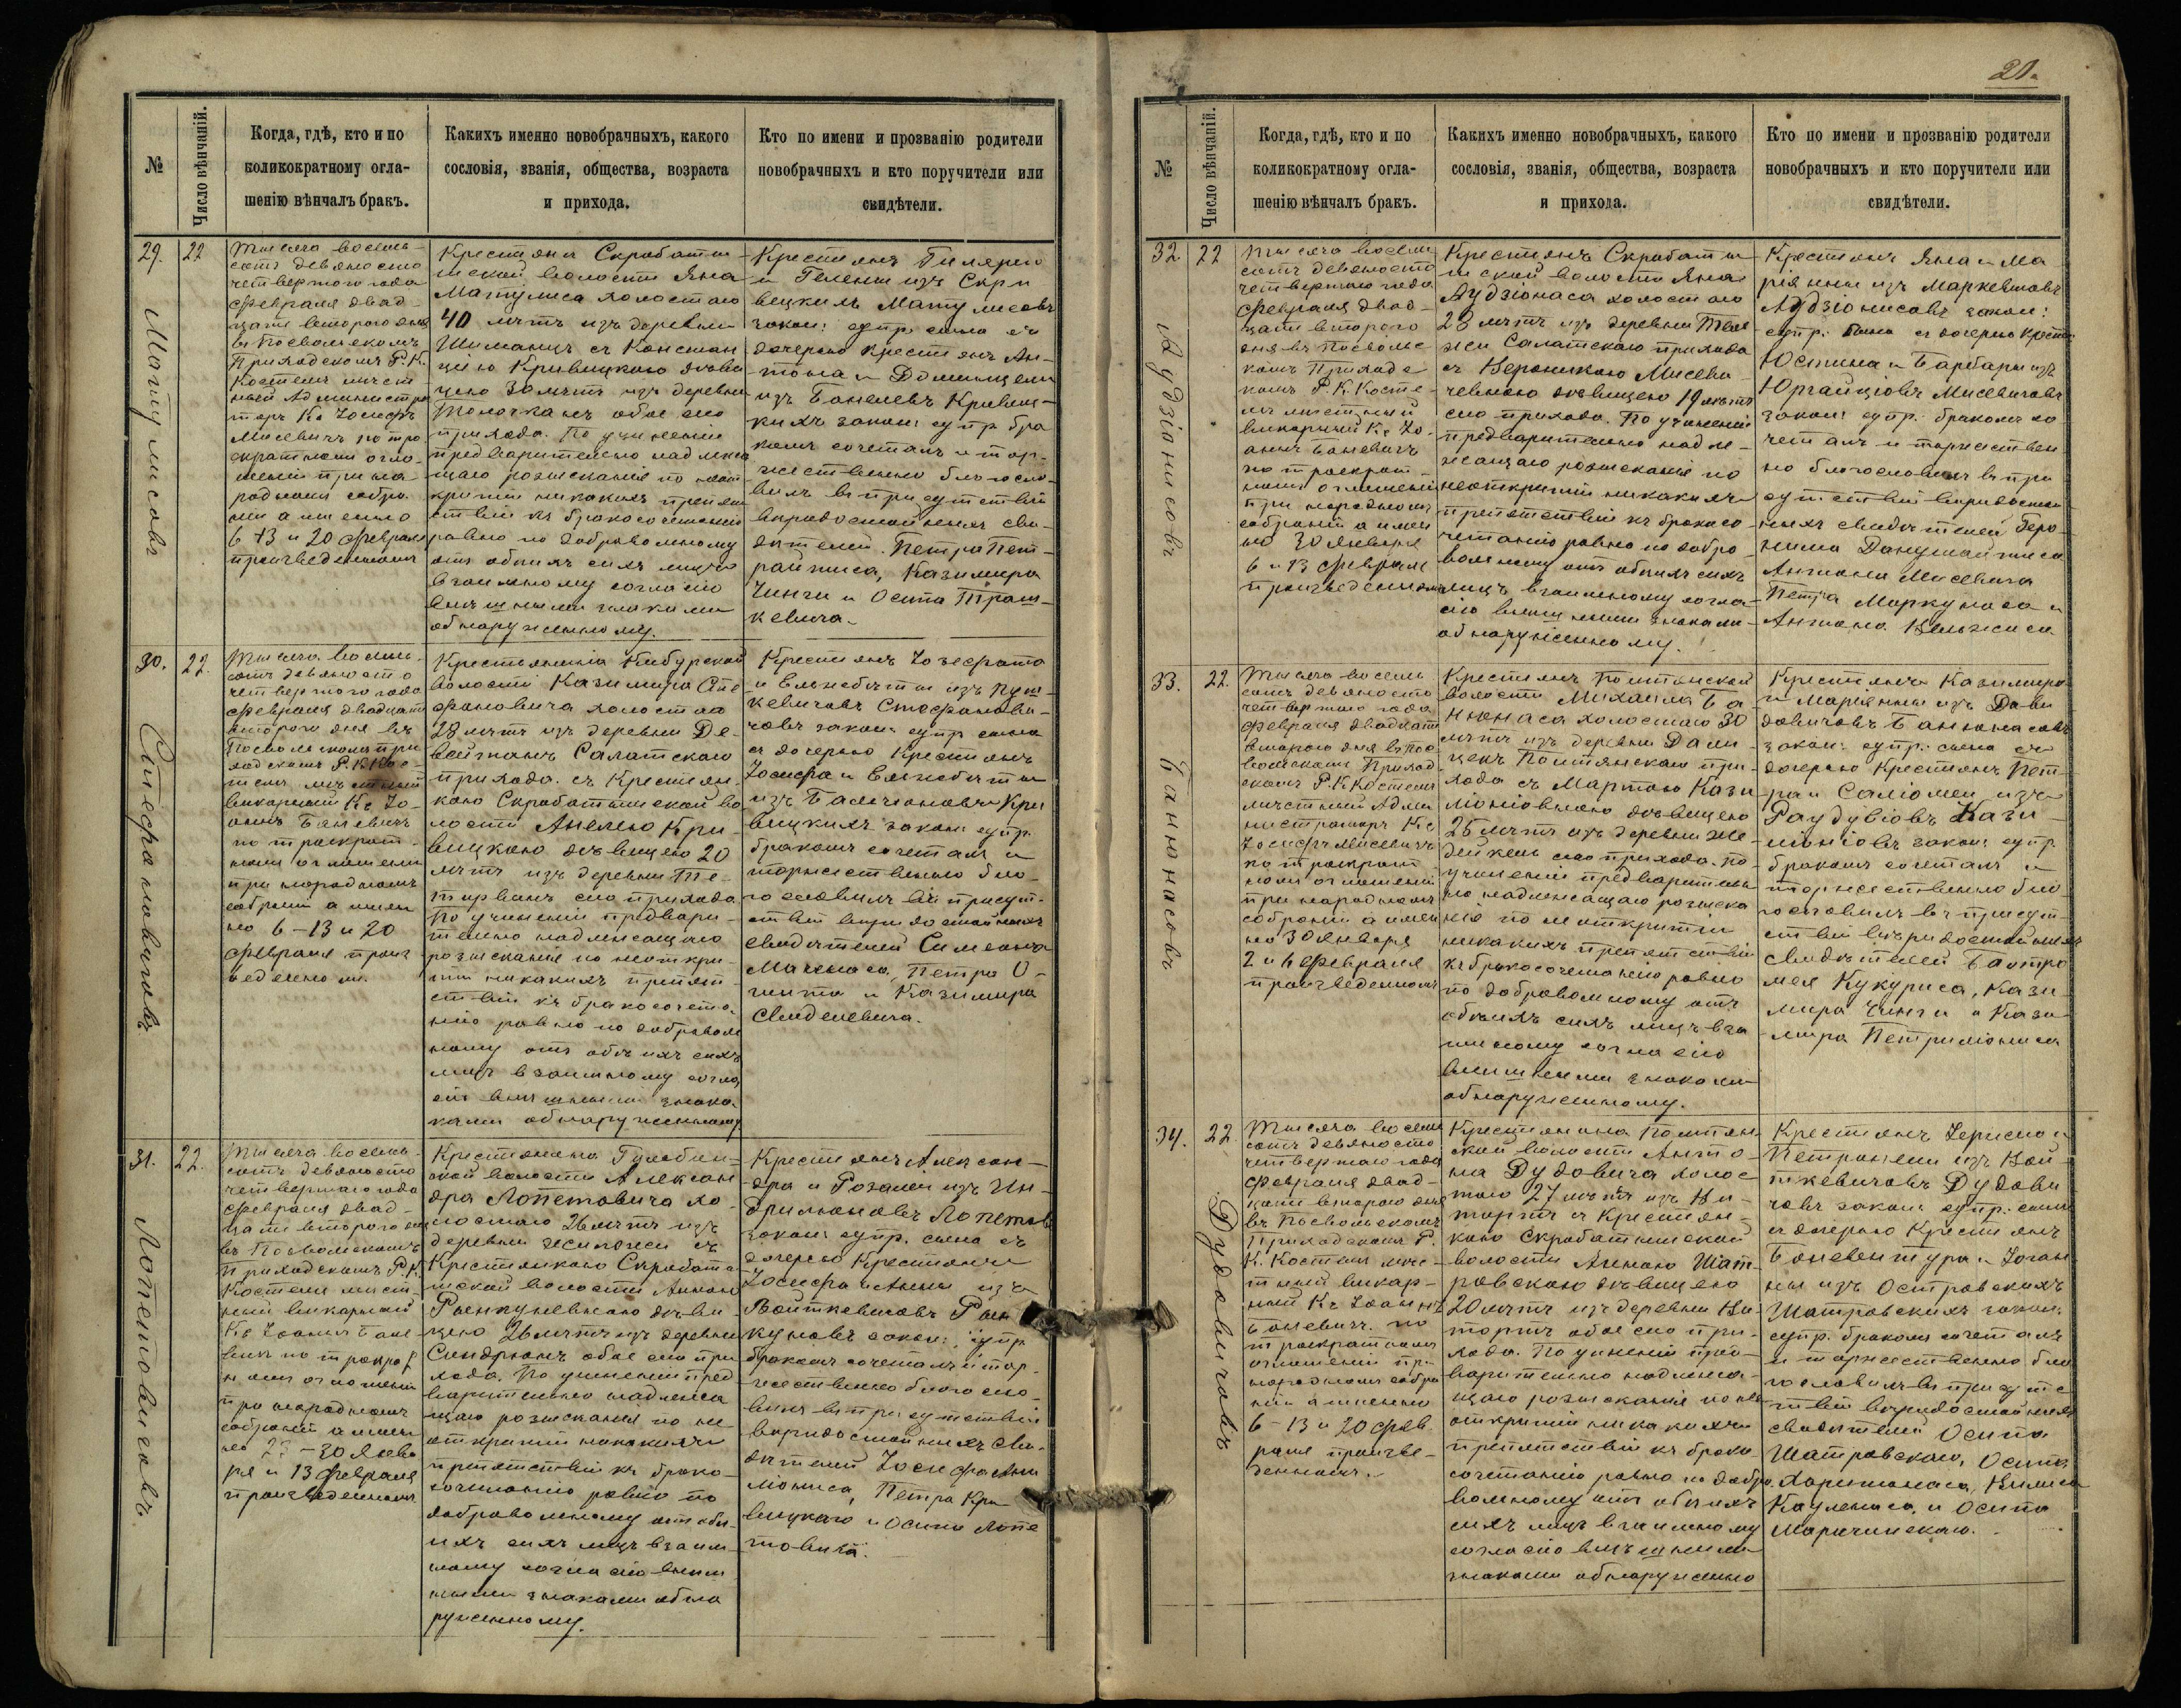 №
Число вѣнчаній.
Когда, гдѣ, кто и по
коликократному огла-
шенію вѣнчалъ бракъ.
Какихъ именно новобрачныхъ, какого
сословія, званія, общества, возраста
и прихода.
Кто по имени и прозванію родители
новобрачныхъ и кто поручители или
свидѣтели.
29.
22
Матулисовъ
Тысяча восемь-
сотъ девяносто
четвертого года
Февраля двад-
цать второго дня
въ Посвольскомъ
Приходскомъ Р. К.
Костелѣ мѣст
ный Администра
торъ Кс Іосифъ
Мисевичъ по тро
екратномъ огла-
шеніи при на
родномъ собра
ніи а именно
6 13 и 20 Февраля
произведенномъ
Крестьянина Скробот
ской волости Яна
Матулиса холостаго
40 лѣтъ изъ деревни
Шиманцъ съ Констан
ціею Кривицкою дѣви
цею 30 лѣтъ изъ деревни
обое сего
прихода. По учиненіи
предварительно надлежа
щаго розысканія по неот
крытіи никакихъ препят
ствій къ бракосочетанію
равно по добровольному
отъ обоихъ сихъ лицъ
взаимному согласію
внѣшними знаками
обнаруженному.
Крестьянъ Гилярего
и Гелены изъ Скри
вецкихъ Матулисовъ
закон: супр. сына съ
дочерью крестьянъ Ан-
тона и Доминицели
изъ Банелевъ Кривиц-
кихъ закон: супр. бра
комъ сочеталъ и тор-
жественно благосло-
вилъ въ присутствіи
вѣродостойныхъ сви-
дѣтелей. Петра Пет-
райтиса, Казимира
Чинги и Осипа Траш-
кевича.
30.
22.
Стефановичовъ
Тысяча восемь-
сотъ девяносто
четвертого года
Февраля двадцать
второго дня въ
Посвольскомъ При
ходскомъ Р. К Кос-
телѣ мѣстный
викарный Кс Іо-
аннъ Баневичъ
по троекрат-
номъ оглашеніи
при народномъ
собраніи а имен
но 6 - 13 и 20
Февраля произ
веденномъ.
Крестьянина Кибурской
волости Казимира Сте
фановича холостаго
28 лѣтъ изъ деревни Де-
вейтанъ Салатскаго
прихода. съ Крестьян-
кою Скроботишской во
лости Анелею Кри-
вицкою дѣвицею 20
лѣтъ изъ деревни Те-
тирванъ сего прихода.
По учиненіи предвари-
тельно надлежащаго
розысканія по неоткры-
тіи никакихъ препят-
ствій къ бракосочета-
нію равно по доброволь
ному отъ обоихъ сихъ
лицъ взаимному согла
сію внѣшними знака-
ками обнаруженному.
Крестьянъ Іозефата
и Елисабеты изъ Пуш-
кевичовъ Стефанови-
човъ закон: супр. сына
съ дочерью Крестьянъ
Іосифа и Елисабеты
изъ Кри
вицкихъ закон: супр.
бракомъ сочеталъ и
торжественно бла-
гословилъ въ присут-
ствіи вѣродостойныхъ
свидѣтелей Симеона
Петра
и Казимира
Свиделевича.
31.
22.
Лопетовичовъ
Тысяча восемь-
сотъ девяносто
четвертаго года
Февраля двад-
цать второго дня
въ Посвольскомъ
Приходскомъ Р.К.
Костелѣ мѣст-
ный викарный
Кс Іоаннъ Бане-
вичъ по троекрат
номъ оглашеніи
при народномъ
собраніи а имен
но 23 - 30 Янва
ря и 13 Февраля
произведенномъ
Крестьянина Гулебин-
ской волости Алексан
дра Лопетовича хо-
лостаго 26 лѣтъ изъ
деревни съ
Крестьянкою Скроботи
шской волости Анною
Ранкуневною дѣви
цею 26 лѣтъ изъ деревни
обое сего при
хода. По учиненіи пред
варительно надлежа
щаго розысканія по не
открытіи никакихъ
препятствій къ брако-
сочетанію равно по
добровольному отъ обо-
ихъ сихъ лицъ взаим-
ному согласію внѣш
ными знаками обна
руженному.
Крестьянъ Алексан-
дра и Розаліи изъ Ин-
дрилюновъ Лопетов
закон: супр. сына съ
дочерью Крестьянъ
Іосифа и Анны изъ
Войткевичовъ Ран
куновъ закон: супр.
бракомъ сочеталъ и тор-
жественно благосло-
вилъ въ присутствіи
вѣродостойныхъ сви-
дѣтелей Іосифа
Петра Кри-
вицкаго и Осипа Лопе
товича.
21.
№
Число вѣнчаній.
Когда, гдѣ, кто и по
коликократному огла-
шенію вѣнчалъ бракъ.
Какихъ именно новобрачныхъ, какого
сословія, званія, общества, возраста
и прихода.
Кто по имени и прозванію родители
новобрачныхъ и кто поручители или
свидѣтели.
32
22
Аудзіонисовъ
Тысяча восемь
сотъ девяносто
четвертаго года
Февраля двад-
цать второго
дня въ Посволь
скомъ Приходс
комъ Р. К. Косте-
лѣ мѣстный
викарный Кс Іо-
аннъ Баневичъ
по троекрат-
номъ оглашеніи
при народномъ
собраніи а имен
но 30 Января
6 и 13 Февраля
произведенномъ
Крестьянъ Скроботи
шской волости Яна
Аудзіонаса холостаго
28 лѣтъ изъ деревни
Салатскаго прихода
съ Вероникою Мисеви-
чевною дѣвицею 19 лѣтъ
сего прихода. По учиненіи
предварительно надле-
жащаго розысканія по
неоткрытіи никакихъ
препятствій къ бракосо-
четанію равно по добро-
вольному отъ обоихъ сихъ
лицъ взаимному согла-
сію внѣшними знаками
обнаруженному.
Крестьянъ Яна и Ма
ріянны изъ Маркевичовъ
Аудзіонисовъ закон:
супр. сына съ дочерью Крестьян
Юстина и Барбары изъ
Юргайціовъ Мисевичовъ
закон: супр. бракомъ со
четалъ и торжествен
но благословилъ въ при
сутствіи вѣродостой
ныхъ свидѣтелей Геро-
нима
Антона Мисевича
Петра Маркунаса и
Антона
33.
22.
Банюнасовъ
Тысяча восемь
сотъ девяносто
четвертаго года
Февраля двадцать
второго дня въ Пос-
вольскомъ Приход
скомъ Р. К Костелѣ
мѣстный Адми
нистраторъ Кс
Іосифъ Мисевичъ
по троекрат
номъ оглашеніи
при народномъ
собраніи а имен
но 30 Января
2 и 6 Февраля
произведенномъ
Крестьянъ Помпянской
волости Михаила Ба
нюнаса холостаго 30
лѣтъ изъ деревни Дали-
цекъ Помпянскаго при-
хода съ Мартою Кази
дѣвицею
25 лѣтъ изъ деревни Же-
сего прихода. По
учиненіи предваритель
но надлежащаго розыска
нія по неоткрытіи
никакихъ препятствій
къ бракосочетанію равно
по добровольному отъ
обоихъ сихъ лицъ вза
имному согласію
внѣшними знаками
обнаруженному.
Крестьянъ Казимира
и Маріянны изъ Дави
довичовъ Банюнасовъ
закон: супр. сына съ
дочерью Крестьянъ Пет-
ра и Саломеи изъ
Раудувіовъ Кази
закон: супр.
бракомъ сочеталъ и
торжественно бла
гословилъ въ присут-
ствіи вѣродостойныхъ
свидѣтелей Бартло
мея Кукуриса, Кази-
мира Чинги и Кази-
мира
34.
22
Дудовичовъ
Тысяча восемь
сотъ девяносто
четвертаго года
Февраля двад-
цать второго дня
въ Посвольскомъ
Приходскомъ Р.
К. Костелѣ мѣс-
тный викар-
ный Кс Іоаннъ
Баневичъ. по
троекратномъ
оглашеніи при
народномъ собра
ніи а именно
6 - 13 и 20 Фев
раля произве-
денномъ.
Крестьянина Помпян
ской волости Анто-
на Дудовича холос-
таго 27 лѣтъ изъ
съ Крестьян-
кою Скроботишской
волости Анною Шат-
ровскою дѣвицею
20 лѣтъ изъ деревни
обое сего при-
хода. По учиненіи пред-
варительно надлежа-
щаго розысканія по не
открытіи никакихъ
препятствій къ брако
сочетанію равно по добро
вольному отъ обоихъ
сихъ лицъ взаимному
согласію внѣшними
знаками обнаруженно
Крестьянъ и
Петронели изъ Вой-
ткевичовъ Дудови
човъ закон: супр: сына
съ дочерью Крестьянъ
Бонвентура и Іоан
ны изъ Островскихъ
Шатровскихъ закон:
супр. бракомъ сочеталъ
и торжественно бла
гословилъ въ присутс-
твіи вѣродостойныхъ
свидѣтелей Осипа
Шатровскаго, Осипа
и Осипа